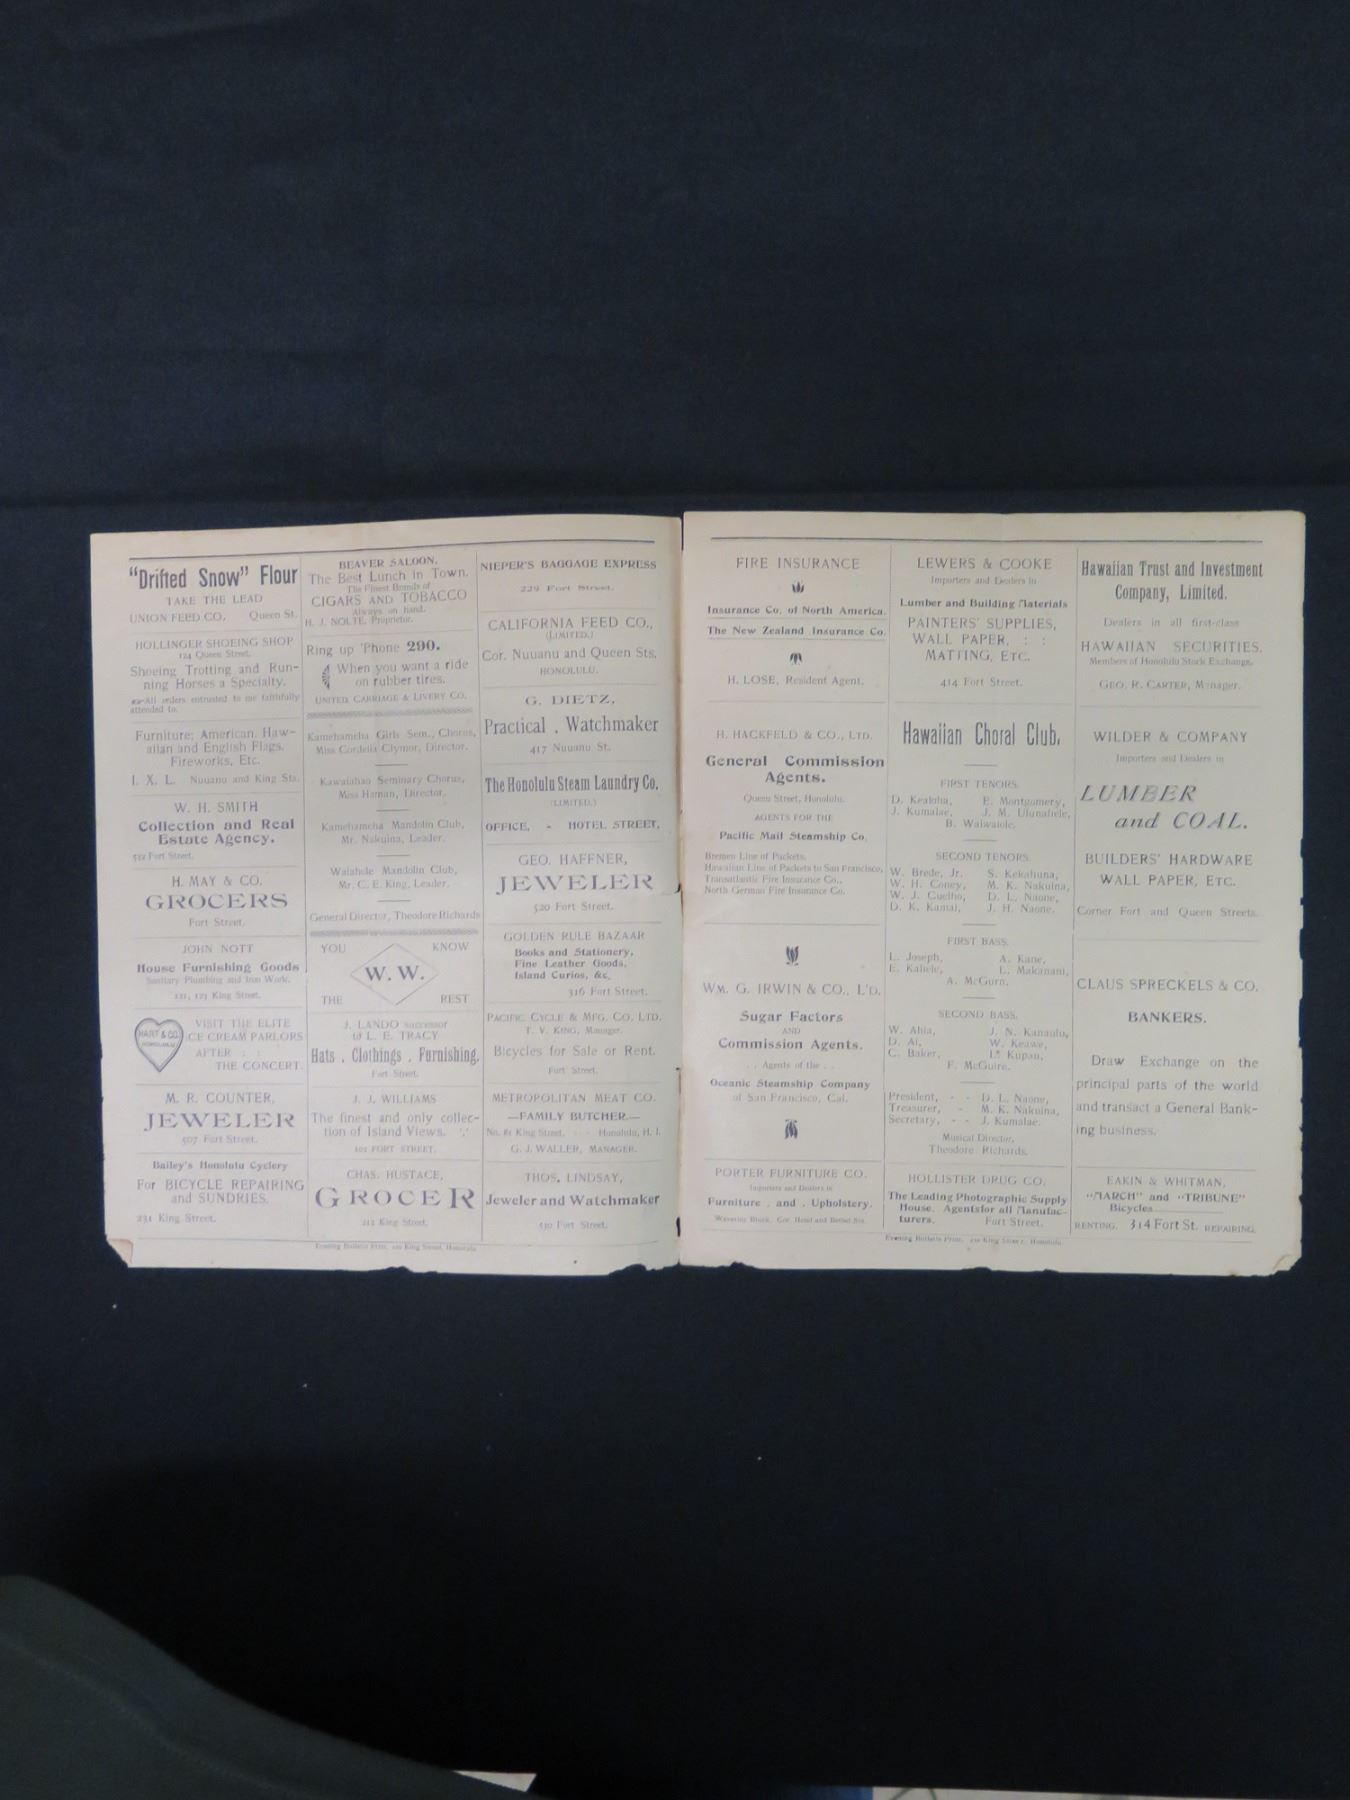 "Drifted Snow" Flour
TAKE THE LEAD
UNION FEED CO. Queen St.
HOLLINGER SHOEING SHOP
124 Queen Street.
Shoeing Trotting and Run-
ning Horses a Specialty.
All orders entrusted to me faithfully
attended to.
Furniture; American, Haw-
aiian and English Flags.
Fireworks, Etc.
I. X. L. Nuuanu and King Sts.
W. H. SMITH
Collection and Real
Estate Agency.
512 Fort Street.
H. MAY & CO.
GROCERS
Fort Street.
JOHN NOTT
House Furnishing Goods
Sanitary Plumbing and Iron Work.
121, 123 King Street.
HART & CO.
HONOLULU
VISIT THE ELITE
ICE CREAM PARLORS
AFTER : :
THE CONCERT.
M. R. COUNTER,
JEWELER
507 Fort Street.
Bailey's Honolulu Cyclery
For BICYCLE REPAIRING
and SUNDRIES.
231 King Street.
BEAVER SALOON,
The Best Lunch in Town.
The Finest Brands of
CIGARS AND TOBACCO
Always on hand.
H. J. NOLTE, Proprietor.
Ring up 'Phone 290.
When you want a ride
on rubber tires.
UNITED CARRIAGE & LIVERY CO.
Kamehameha Girls Sem., Chorus,
Miss Cordelia Clymor, Director.
Kawaiahao Seminary Chorus,
Miss Haman, Director.
Kamehameha Mandolin Club,
Mr. Nakuina, Leader.
Waiahole Mandolin Club,
Mr. C. E. King, Leader.
General Director, Theodore Richards
YOU KNOW
W. W.
THE REST
J. LANDO successor
to L. E. TRACY
Hats . Clothings . Furnishing.
Fort Street.
J. J. WILLIAMS
The finest and only collec-
tion of Island Views.
102 FORT STREET.
CHAS. HUSTACE,
GROCER
212 King Street.
NIEPER'S BAGGAGE EXPRESS
229 Fort Street.
CALIFORNIA FEED CO.,
(LIMITED.)
Cor. Nuuanu and Queen Sts.
HONOLULU.
G. DIETZ,
Practical . Watchmaker
417 Nuuanu St.
The Honolulu Steam Laundry Co.
(LIMITED.)
OFFICE, - HOTEL STREET.
GEO. HAFFNER,
JEWELER
520 Fort Street.
GOLDEN RULE BAZAAR
Books and Stationery,
Fine Leather Goods,
Island Curios, &c.
316 Fort Street.
PACIFIC CYCLE & MFG. CO. LTD.
T. V. KING, Manager.
Bicycles for Sale or Rent.
Fort Street.
METROPOLITAN MEAT CO.
—FAMILY BUTCHER.—
No. 81 King Street, - - - Honolulu, H. I.
G. J. WALLER, MANAGER.
THOS. LINDSAY,
Jeweler and Watchmaker
530 Fort Street.
Evening Bulletin Print, 210 King Street, Honolulu
FIRE INSURANCE
Insurance Co. of North America.
The New Zealand Insurance Co.
H. LOSE, Resident Agent.
H. HACKFELD & CO., LTD.
General Commission
Agents.
Queen Street, Honolulu.
AGENTS FOR THE
Pacific Mail Steamship Co.
Bremen Line of Packets.
Hawaiian Line of Packets to San Francisco,
Transatlantic Fire Insurance Co.,
North German Fire Insurance Co.
WM. G. IRWIN & CO., L'D.
Sugar Factors
AND
Commission Agents.
. . Agents of the . .
Oceanic Steamship Company
of San Francisco, Cal.
PORTER FURNITURE CO.
Importers and Dealers in
Furniture . and . Upholstery.
Waverley Block, Cor. Hotel and Bethel Sts.
LEWERS & COOKE
Importers and Dealers in
Lumber and Building Materials
PAINTERS' SUPPLIES,
WALL PAPER, : :
MATTING, ETC.
414 Fort Street.
Hawaiian Choral Club.
FIRST TENORS.
D. Kealoha, E. Montgomery,
J. Kumalae, J. M. Ulunahele,
B. Waiwaiole.
SECOND TENORS.
W. Brede, Jr. S. Kekahuna,
W. H. Coney, M. K. Nakuina,
W. J. Coelho, D. L. Naone,
D. K. Kamai, J. H. Naone.
FIRST BASS.
L. Joseph, A. Kane,
E. Kahele, L. Makanani,
A. McGurn.
SECOND BASS.
W. Ahia, J. N. Kanaulu,
D. Ai, W. Keawe,
C. Baker, L. Kupau,
F. McGuire.
President, - - D. L. Naone,
Treasurer, - M. K. Nakuina,
Secretary, - - J. Kumalae.
Musical Director,
Theodore Richards.
HOLLISTER DRUG CO.
The Leading Photographic Supply
House. Agents for all Manufac-
turers. Fort Street.
Hawaiian Trust and Investment
Company, Limited.
Dealers in all first-class
HAWAIIAN SECURITIES.
Members of Honolulu Stock Exchange.
GEO. R. CARTER, Manager.
WILDER & COMPANY
Importers and Dealers in
LUMBER
and COAL.
BUILDERS' HARDWARE
WALL PAPER, ETC.
Corner Fort and Queen Streets.
CLAUS SPRECKELS & CO.
BANKERS.
Draw Exchange on the
principal parts of the world
and transact a General Bank-
ing business.
EAKIN & WHITMAN,
"MARCH" and "TRIBUNE"
Bicycles
RENTING. 314 Fort St. REPAIRING.
Evening Bulletin Print, 210 King Street, Honolulu